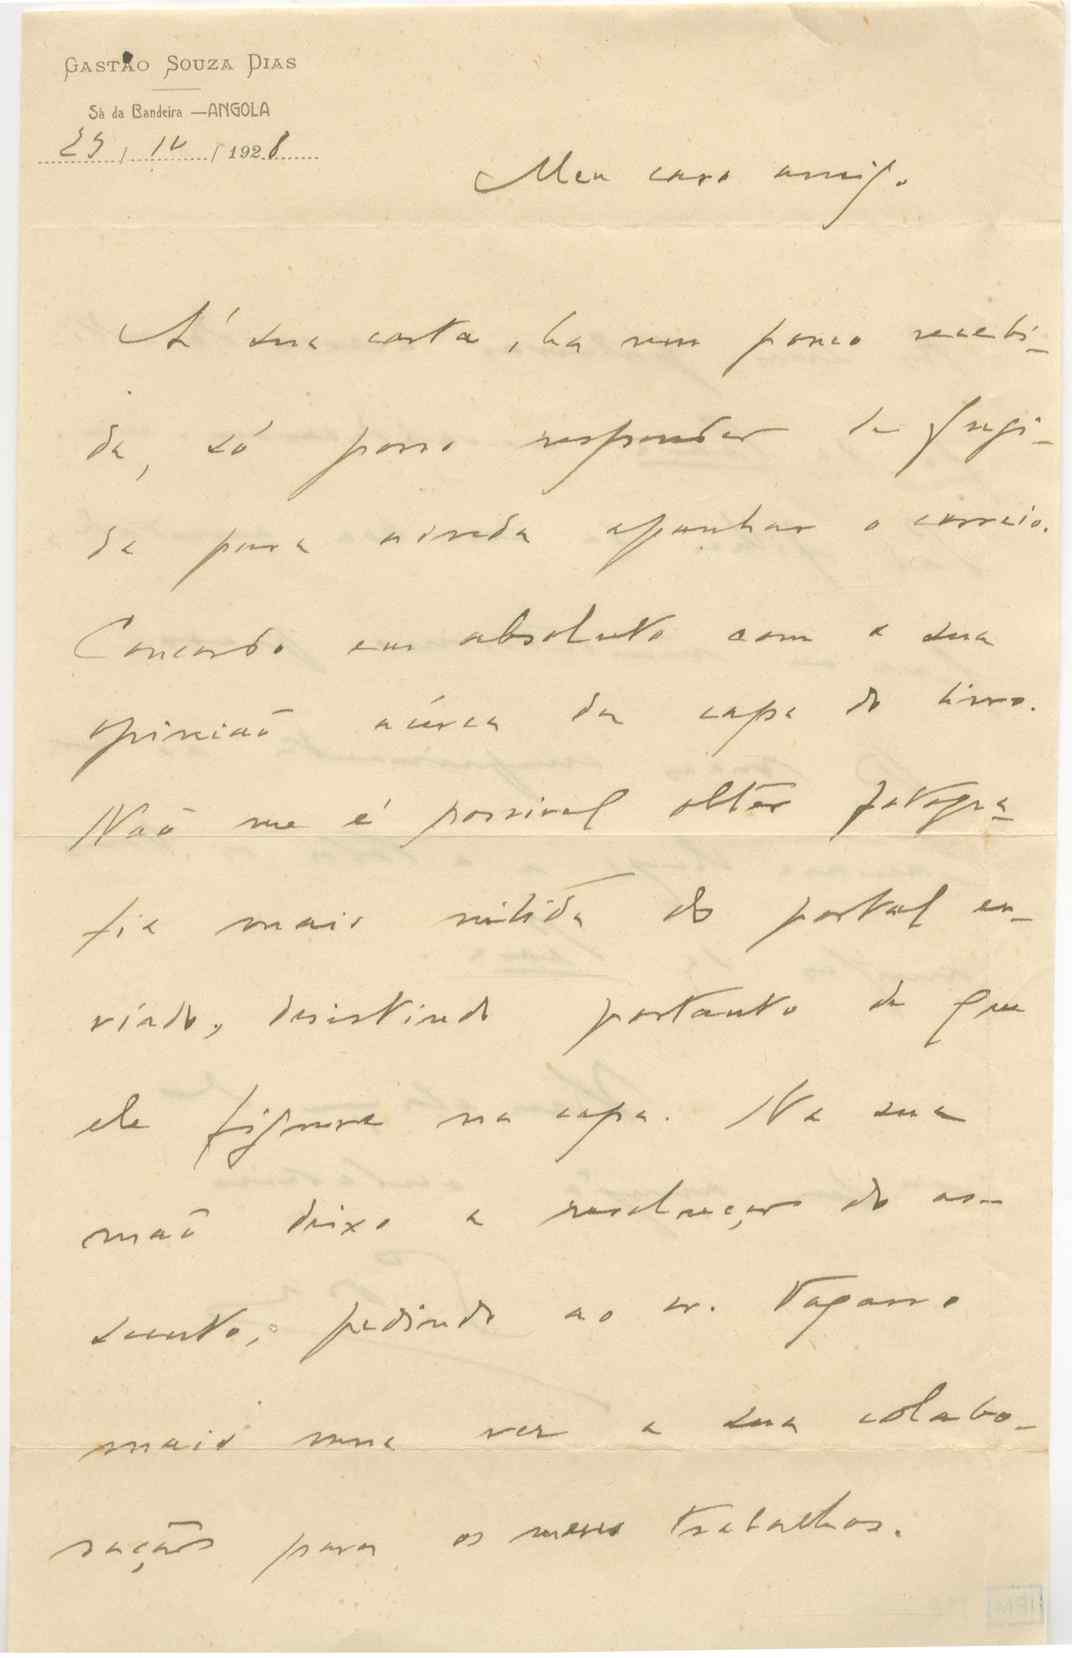 GASTÃO SOUZA DIAS
Sá da Bandeira — ANGOLA
1928
Meu caro amigo.
A' sua carta, ha um pouco recebi-
da, só posso responder de fugi-
da para ainda apanhar o correio.
Concordo em absoluto com a sua
opinião acerca da capa do livro.
Não me é possivel obter fotogra-
fia mais nitida do portal en-
viado, desistindo portanto de que
ele figure na capa. Na sua
mão deixo a resolução do as-
sunto, pedindo ao sr.
mais uma vez a sua colabo-
ração para os meus trabalhos.